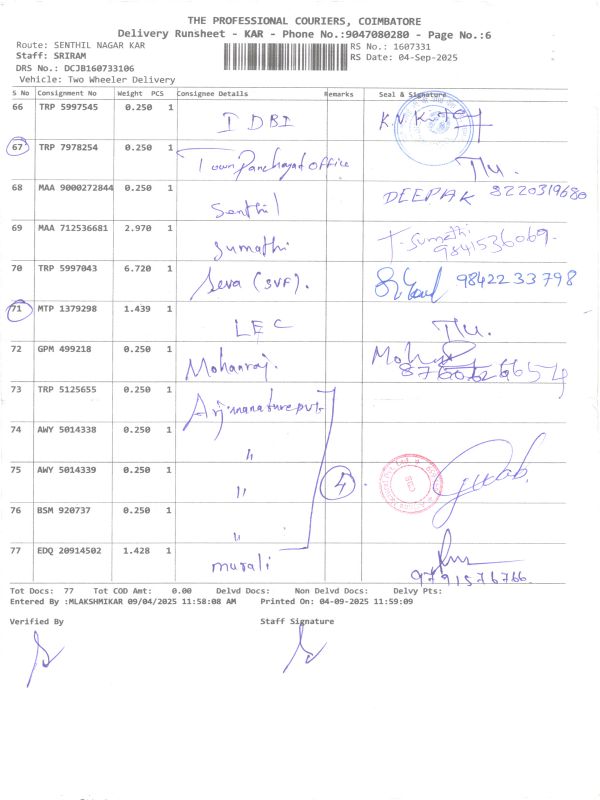 THE PROFESSIONAL COURIERS, COIMBATORE
Delivery Runsheet - KAR - Phone No.:9047080280 - Page No.:6
Route: SENTHIL NAGAR KAR RS No.: 1607331
Staff: SRIRAM RS Date: 04-Sep-2025
DRS No.: DCJB160733106
Vehicle: Two Wheeler Delivery
S No Consignment No Weight PCS Consignee Details Remarks Seal & Signature
66 TRP 5997545 0.250 1 IDBI
67 TRP 7978254 0.250 1 Town Panchayat office
68 MAA 9000272844 0.250 1 Senthil DEEPAK 8220319680
69 MAA 712536681 2.970 1 Sumathi T. Sumathi
9841536069.
70 TRP 5997043 6.720 1 Seva (SVF). 98422 33798
71 MTP 1379298 1.439 1 LEC
72 GPM 499218 0.250 1 Mohanraj.
73 TRP 5125655 0.250 1
74 AWY 5014338 0.250 1 "
75 AWY 5014339 0.250 1 " 4
76 BSM 920737 0.250 1 "
77 EDQ 20914502 1.428 1 murali
9791576766.
Tot Docs: 77 Tot COD Amt: 0.00 Delvd Docs: Non Delvd Docs: Delvy Pts:
Entered By :MLAKSHMIKAR 09/04/2025 11:58:08 AM Printed On: 04-09-2025 11:59:09
Verified By Staff Signature